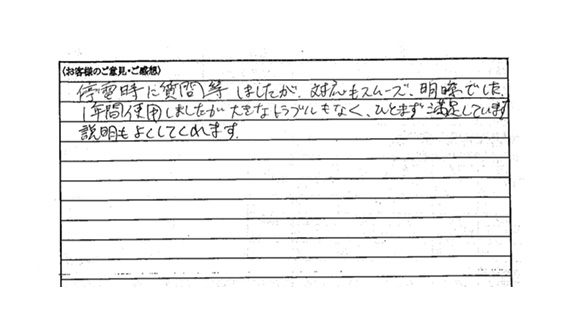 (お客様のご意見・ご感想)
停電時に質問等しましたが、対応もスムーズ、明瞭でした。
1年間使用しましたが大きなトラブルもなく、ひとまず満足しています
説明もよくしてくれます。